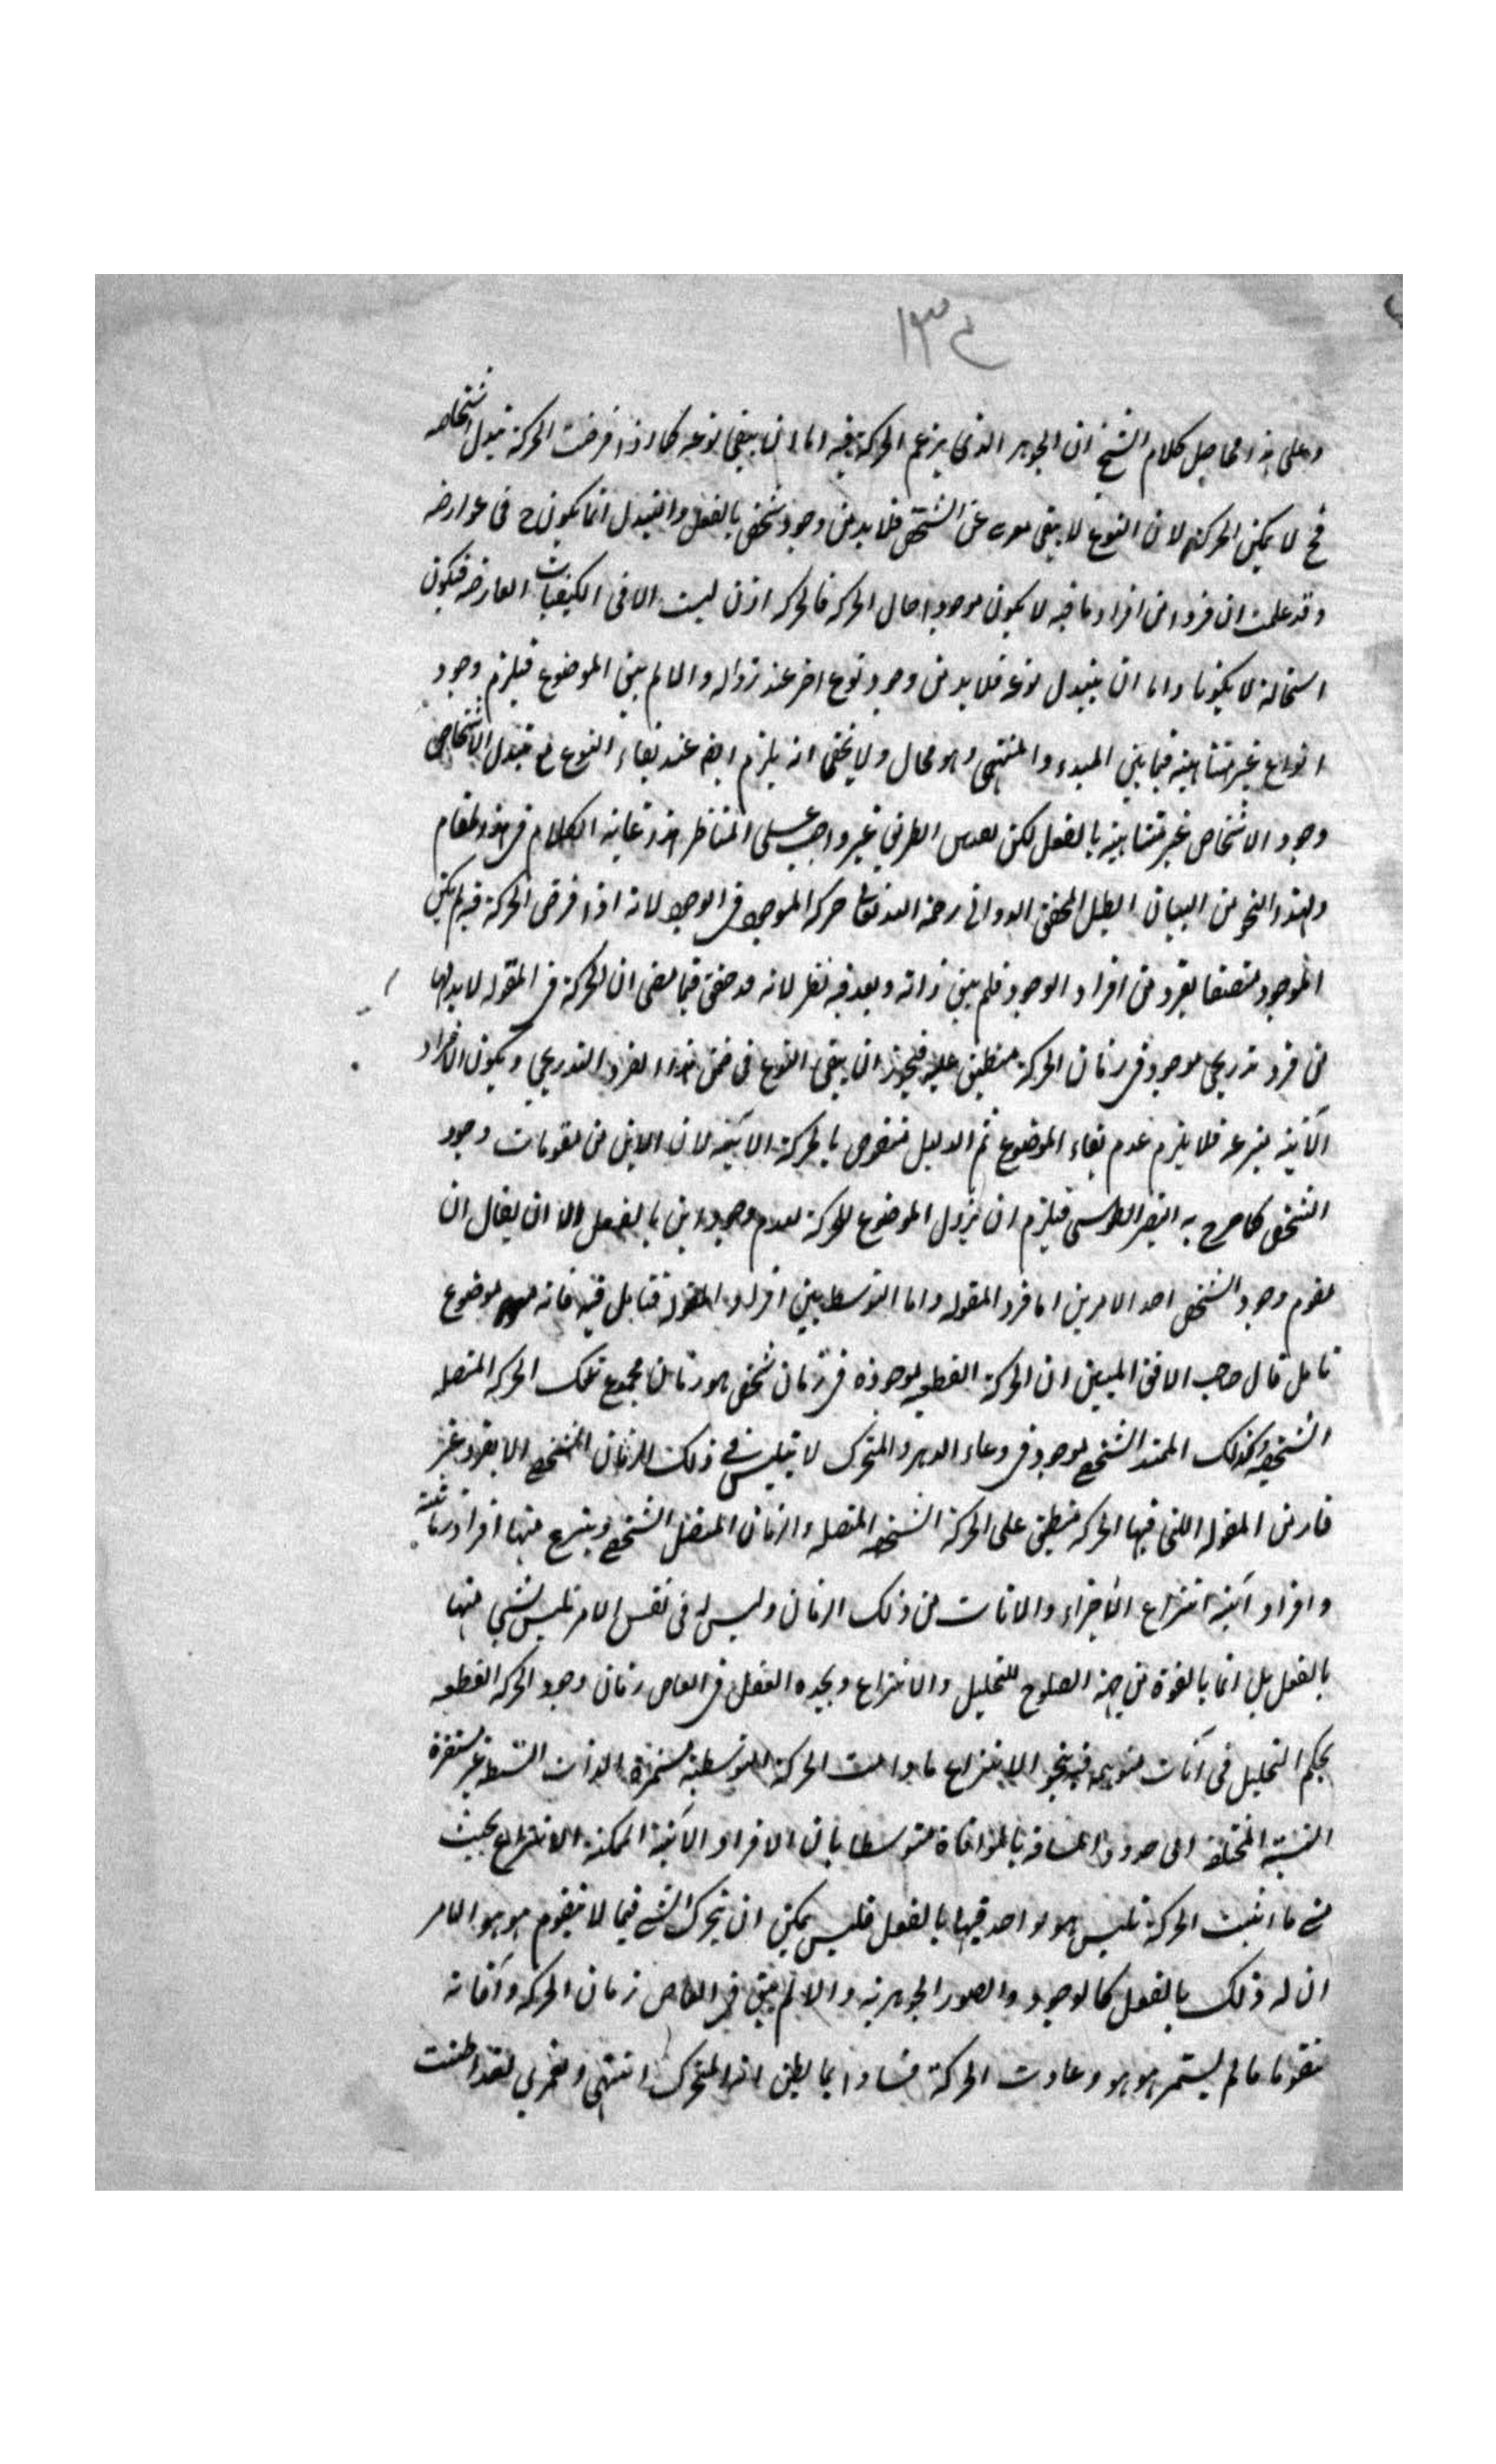 ١٣٤
وعلى هذا فحاصل كلام الشيخ ان الجوهر الذى يزعم الحركة فيه اما ان يبقى نوعه كما اذا فرضت الحركة تبدل اشخاصه
فح لا يمكن الحركة لان النوع لا يبقى معرى عن التشخص فلا بد من وجود شخص بالفعل والتبدل انما يكون ح فى عوارضه
وقد علمت ان فردا من افراد ما فيه لا يكون موجودا حال الحركة فالحركة اذن ليست الا فى الكيفيات العارضة فتكون
استحالة لا يكونا واما ان يتبدل نوعه فلا بد من وجود نوع اخر عند زواله والا لم يبق الموضوع فيلزم وجود
انواع غير متناهية فيما بين المبدء والمنتهى وهو محال ولا يخفى انه يلزم ايضا عند بقاء النوع مع تبدل الاشخاص
وجود الاشخاص غير متناهية بالفعل لكن الطريق غير واجب على المناظر هذا غاية الكلام فى هذا المقام
ولهذا النحو من البيان ابطل المحقق الدوانى رحمه الله تعالى حركة الموجود فى الوجود لانه اذا فرض الحركة فيه لم يكن
الموجود متصفا بفرد من افراد الوجود فلم يبق ذاته وبعد فيه نظر لانه قد حقق فيما مضى ان الحركة فى المقولة لا بد لها
من فرد تدريجى موجود فى زمان الحركة منطبق عليه فيجوز ان يبقى النوع فى ضمن هذا الفرد التدريجى ويكون الافراد
الآنية منتزعة فلا يلزم عدم بقاء الموضوع ثم الدليل منقوض بالحركة الاينية لان الاين من مقومات وجود
الشخص كما صرح به النصير الطوسى فيلزم ان يزول الموضوع للحركة لعدم وجود اين بالفعل الا ان يقال ان
مقوم وجود الشخص احد الامرين اما فرد المقولة واما التوسط بين افراد المقولة فتأمل فيه فانه موضوع
تامل قال صاحب الافق المبين ان الحركة القطعية موجودة فى زمان شخص هو زمان مجموع تلك الحركة المتصلة
الشخصية وكذلك الممتد الشخصى موجود فى وعاء الدهر والمتحرك لا يتلبس فى ذلك الزمان الشخصى الا بفرد غير
قار من المقولة التى فيها الحركة منطبق على الحركة الشخصية المتصلة والزمان المتصل الشخصى وينتزع منها افراد زمانية
وافراد آنية انتزاع الاجزاء والانات من ذلك الزمان وليس له فى نفس الامر تلبس بشئ منها
بالفعل بل انما بالقوة من جهة الصلوح للتحليل والانتزاع ويجده العقل فى ابعاض زمان وجود الحركة القطعية
بحكم التحليل فى آنات متوهمة فيه بنحو الانتزاع ما دامت الحركة التوسطية مستمرة الذات البسيطة غير مستقرة
النسبة المختلفة الى حدود المسافة بالموافاة متوسطا بان الافراد الآنية الممكنة الانتزاع بحيث
متى ما اثبت الحركة تلبس هو بواحد فيها بالفعل فليس يمكن ان يتحرك الشئ فيما لا يتقوم هو هو الا مر
ان له ذلك بالفعل كالوجود والصور الجوهرية والا لم يبق فى ابعاض زمان الحركة وآنانه
متقوما ما لم يستمر هو هو وعادت الحركة فسادا بما يظن انه المتحرك انتهى ولعمرى لقد اطنبت